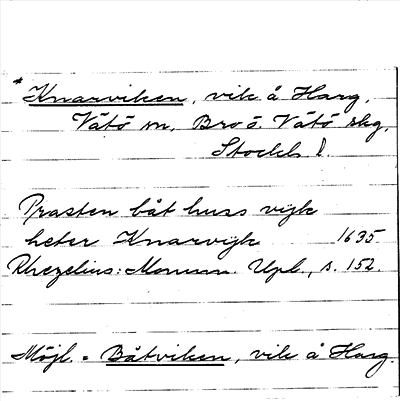 * Knarviken, vik å Harg,
Vätö sn, Bro o. Vätö skg,
Stockh. l.
Prasten båt huss vijk
heter Knarvijk 1635
Rhezelius: Monum. Upl., s. 152.
Möjl. = Båtviken, vik å Harg.